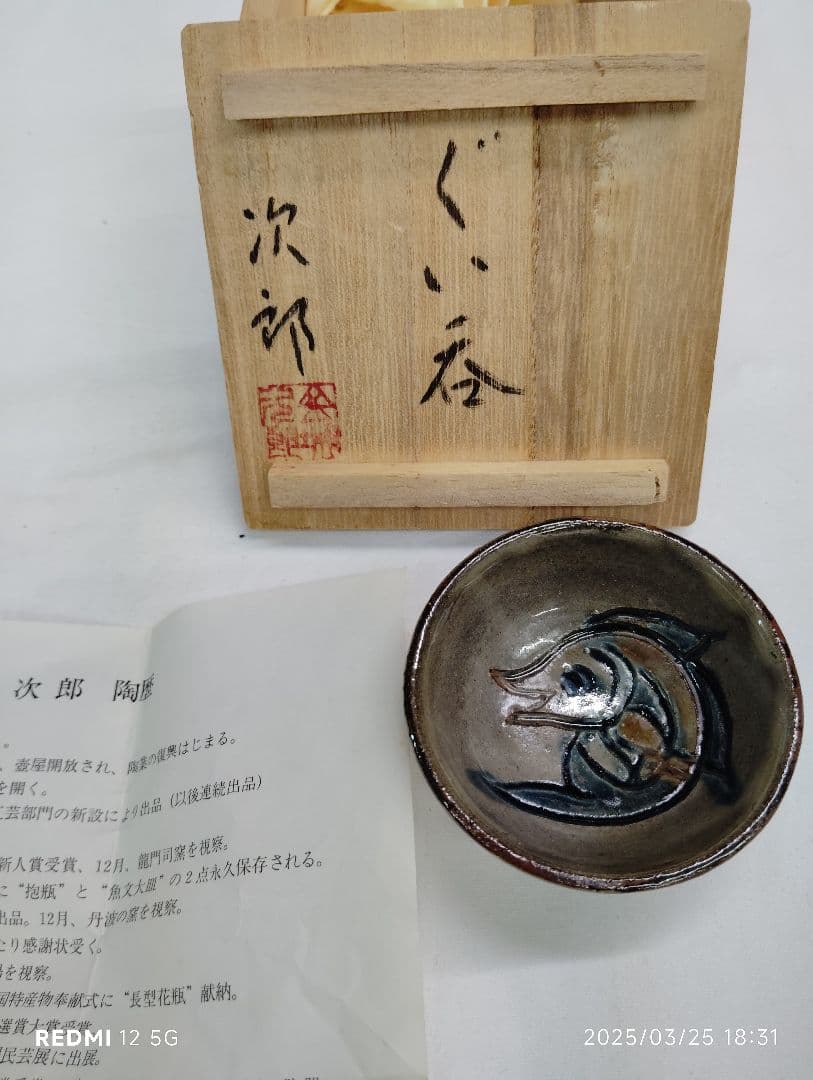 ぐい呑
次郎
次郎 陶歴
。
、壺屋開放され、陶業の復興はじまる。
を開く。
工芸部門の新設により出品(以後連続出品)
新人賞受賞、12月、龍門司窯を視察。
に“抱瓶”と“魚文大皿”の2点永久保存される。
出品。12月、丹波の窯を視察。
たり感謝状受く。
を視察。
国特産物奉献式に“長型花瓶”献納。
選賞大賞受賞
民芸展に出展。
REDMI 12 5G
2025/03/25 18:31